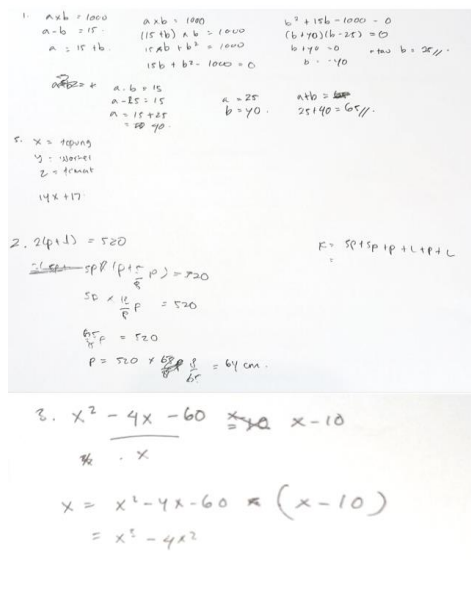 1. a x b = 1000
a - b = 15
a = 15 + b.
a x b = 1000
(15 + b) x b = 1000
15 x b + b² = 1000
15b + b² - 1000 = 0
b² + 15b - 1000 = 0
(b + 40)(b - 25) = 0
b + 40 = 0 atau b = 25 //
b = -40
a - b = 15
a - 25 = 15
a = 15 + 25
= 40.
a = 25
b = 40.
a + b =
25 + 40 = 65 //.
5. x = tepung
y = wortel
z = tomat
14x + 17
2. 2(p + l) = 520
= 520
= 520
p = 520
p = 520 x 8/65 = 64 cm.
K = sp + sp + p + L + p + L
=
3. x² - 4x - 60
x
x - 10
x = x² - 4x - 60 (x - 10)
= x² - 4x²